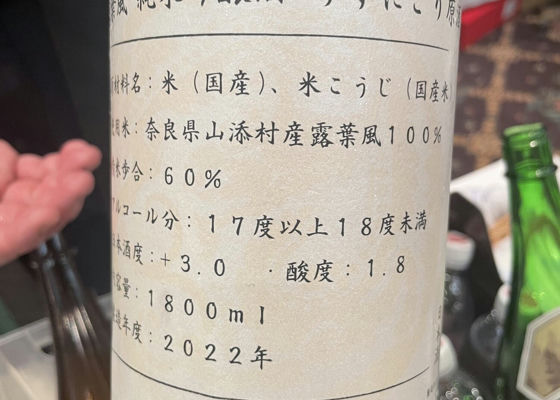 材料名：米（国産）、米こうじ（国産米
用米：奈良県山添村産露葉風１００％
歩合：６０％
ルコール分：１７度以上１８度未満
本酒度：＋３.０　・酸度：１.８
容量：１８００ｍｌ
年度：２０２２年